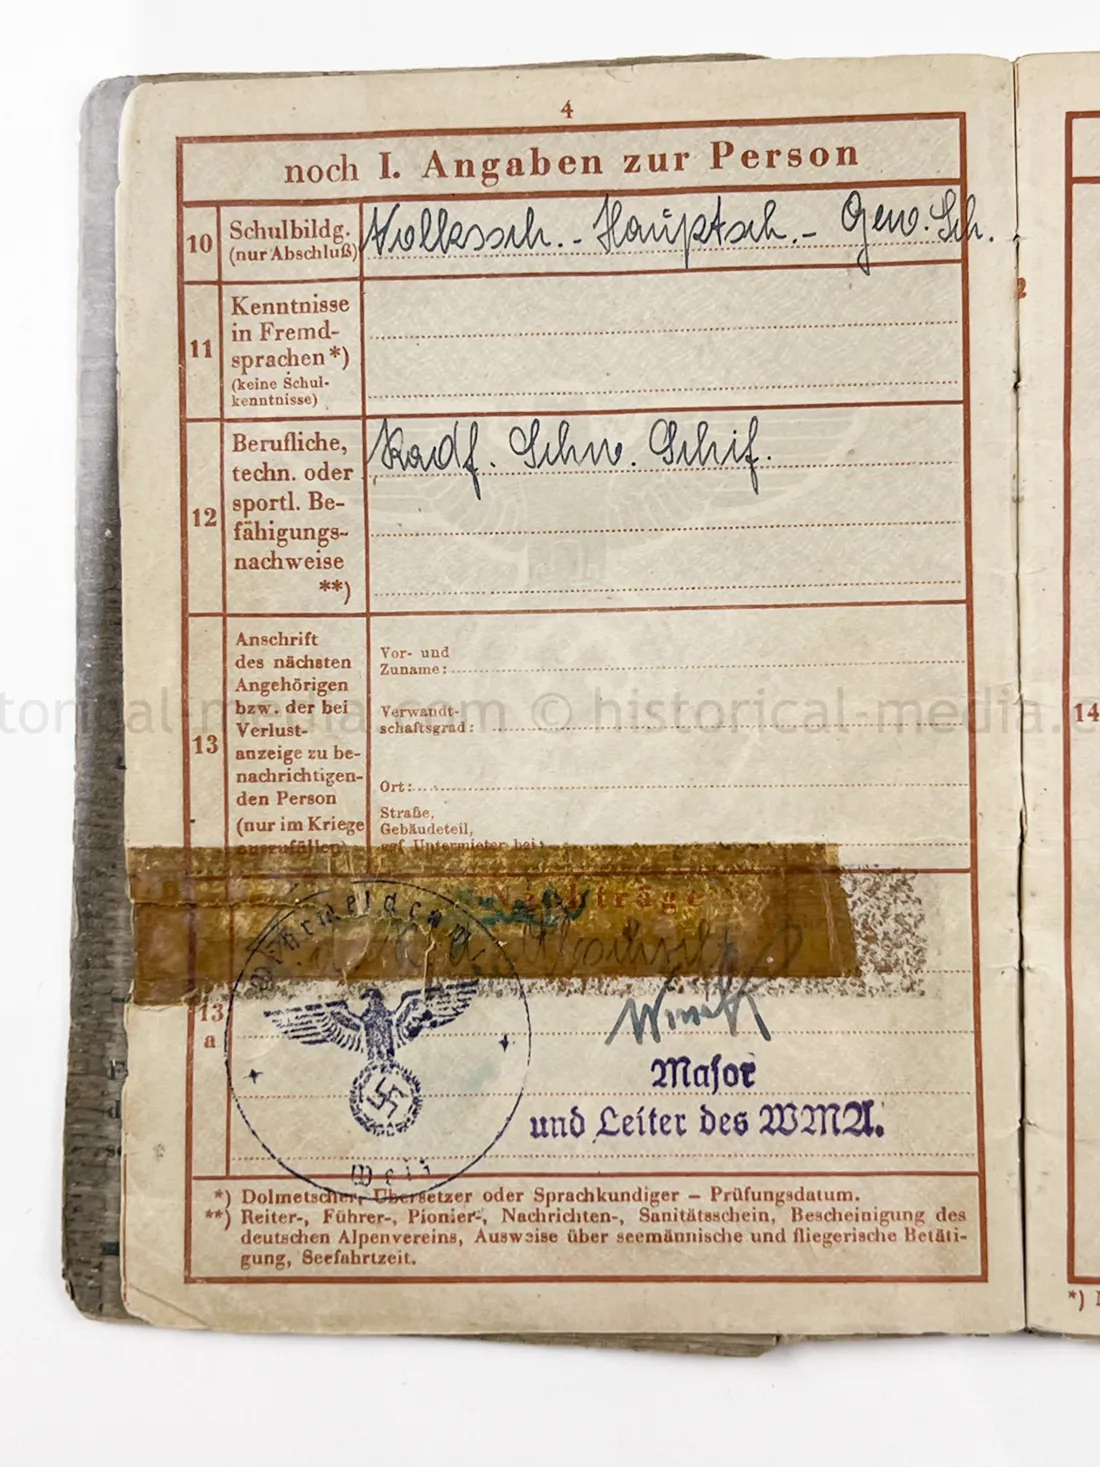 4
noch I. Angaben zur Person
10 Schulbildg. (nur Abschluß) Volkssch. - Hauptsch. - Gew. Sch.
11 Kenntnisse
in Fremd-
sprachen *)
(keine Schul-
kenntnisse)
12 Berufliche, techn. oder sportl. Be-
fähigungs-
nachweise
**)
Radf. Schw. Schif.
13 Anschrift
des nächsten
Angehörigen
bzw. der bei
Verlust-
anzeige zu be-
nachrichtigen-
den Person
(nur im Kriege
auszufüllen)
Vor- und
Zuname:
Verwandt-
schaftsgrad:
Ort:
Straße,
Gebäudeteil,
ggf. Untermieter bei:
Nachträge
13
a
Major
und Leiter des WMA.
*) Dolmetscher, Übersetzer oder Sprachkundiger – Prüfungsdatum.
**) Reiter-, Führer-, Pionier-, Nachrichten-, Sanitätsschein, Bescheinigung des
deutschen Alpenvereins, Ausweise über seemännische und fliegerische Betäti-
gung, Seefahrtzeit.
2
14
*)
torical-media.com © historical-media.c